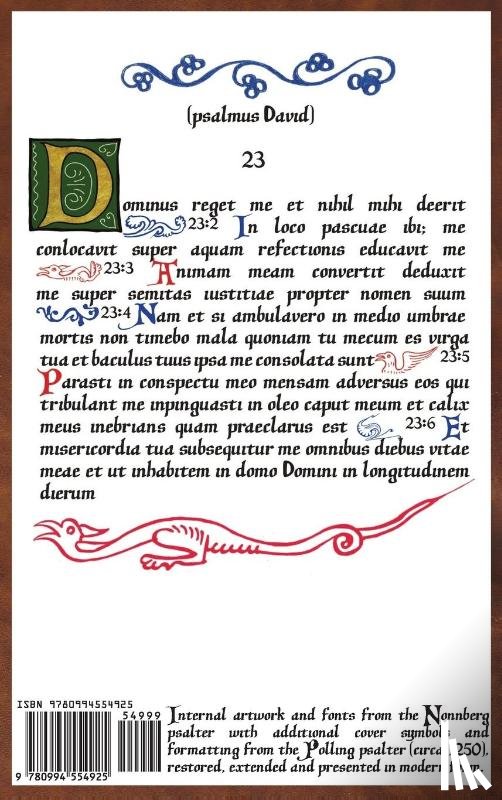 (psalmus David)
23
Dominus reget me et nihil mihi deerit
23:2 In loco pascuae ibi; me
conlocavit super aquam refectionis educavit me
23:3 Animam meam convertit deduxit
me super semitas iustitiae propter nomen suum
23:4 Nam et si ambulavero in medio umbrae
mortis non timebo mala quoniam tu mecum es virga
tua et baculus tuus ipsa me consolata sunt 23:5
Parasti in conspectu meo mensam adversus eos qui
tribulant me inpinguasti in oleo caput meum et calix
meus inebrians quam praeclarus est 23:6 Et
misericordia tua subsequitur me omnibus diebus vitae
meae et ut inhabitem in domo Domini in longitudinem
dierum
ISBN 9780994554925
54999
9 780994 554925
Internal artwork and fonts from the Nonnberg
psalter with additional cover symbols and
formatting from the Polling psalter (circa 1250),
restored, extended and presented in modern